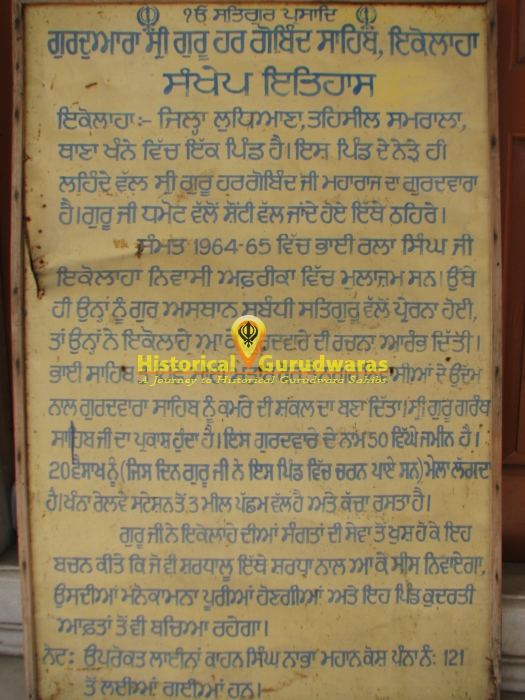 ੧ੳ ਸਤਿਗੁਰ ਪ੍ਰਸਾਦਿ
ਗੁਰਦੁਆਰਾ ਸ੍ਰੀ ਗੁਰੂ ਹਰ ਗੋਬਿੰਦ ਸਾਹਿਬ, ਇਕੋਲਾਹਾ
ਸੰਖੇਪ ਇਤਿਹਾਸ
ਇਕੋਲਾਹਾ:– ਜਿਲ੍ਹਾ ਲੁਧਿਆਣਾ,ਤਹਿਸੀਲ ਸਮਰਾਲਾ,
ਥਾਣਾ ਖੰਨੇ ਵਿੱਚ ਇੱਕ ਪਿੰਡ ਹੈ। ਇਸ ਪਿੰਡ ਦੇ ਨੇੜੇ ਹੀ
ਲਹਿੰਦੇ ਵੱਲ ਸ੍ਰੀ ਗੁਰੂ ਹਰਗੋਬਿੰਦ ਜੀ ਮਹਾਰਾਜ ਦਾ ਗੁਰਦਵਾਰਾ
ਹੈ। ਗੁਰੂ ਜੀ ਧਮੋਟ ਵੱਲੋਂ ਸੌਂਟੀ ਵੱਲ ਜਾਂਦੇ ਹੋਏ ਇੱਥੇ ਠਹਿਰੇ।
ਸੰਮਤ 1964-65 ਵਿੱਚ ਭਾਈ ਰਲਾ ਸਿੰਘ ਜੀ
ਇਕੋਲਾਹਾ ਨਿਵਾਸੀ ਅਫਰੀਕਾ ਵਿੱਚ ਮੁਲਾਜ਼ਮ ਸਨ। ਉਥੇ
ਹੀ ਉਨ੍ਹਾਂ ਨੂੰ ਗੁਰ ਅਸਥਾਨ ਸਬੰਧੀ ਸਤਿਗੁਰੂ ਵੱਲੋਂ ਪ੍ਰੇਰਨਾ ਹੋਈ,
ਤਾਂ ਉਨ੍ਹਾਂ ਨੇ ਇਕੋਲਾਹੇ ਆ ਦੀ ਰਚਨਾ ਆਰੰਭ ਦਿੱਤੀ।
Historical Gurudwaras
A Journey to Historical Gurudwara Sahibs
ਭਾਈ ਸਾਹਿਬ ਦੇ ਉੱਦਮ
ਨਾਲ ਗੁਰਦਵਾਰਾ ਸਾਹਿਬ ਨੂੰ ਕਮਰੇ ਦੀ ਸ਼ਕਲ ਦਾ ਬਣਾ ਦਿੱਤਾ। ਸ੍ਰੀ ਗੁਰੂ ਗਰੰਥ
ਸਾਹਿਬ ਜੀ ਦਾ ਪ੍ਰਕਾਸ਼ ਹੁੰਦਾ ਹੈ। ਇਸ ਗੁਰਦਵਾਰੇ ਦੇ ਨਾਮ 50 ਵਿੱਘੇ ਜਮੀਨ ਹੈ।
20 ਵੈਸਾਖ ਨੂੰ (ਜਿਸ ਦਿਨ ਗੁਰੂ ਜੀ ਨੇ ਇਸ ਪਿੰਡ ਵਿੱਚ ਚਰਨ ਪਾਏ ਸਨ) ਮੇਲਾ ਲੱਗਦਾ
ਹੈ। ਖੰਨਾ ਰੇਲਵੇ ਸਟੇਸ਼ਨ ਤੋਂ, 3 ਮੀਲ ਪੱਛਮ ਵੱਲ ਹੈ ਅਤੇ ਕੱਚਾ ਰਸਤਾ ਹੈ।
ਗੁਰੂ ਜੀ ਨੇ ਇਕੋਲਾਹੇ ਦੀਆਂ ਸੰਗਤਾਂ ਦੀ ਸੇਵਾ ਤੋਂ ਖੁਸ਼ ਹੋ ਕੇ ਇਹ
ਬਚਨ ਕੀਤੇ ਕਿ ਜੋ ਵੀ ਸ਼ਰਧਾਲੂ ਇੱਥੇ ਸ਼ਰਧਾ ਨਾਲ ਆ ਕੇ ਸੀਸ ਨਿਵਾਏਗਾ,
ਉਸਦੀਆਂ ਮਨੋਕਾਮਨਾ ਪੂਰੀਆਂ ਹੋਣਗੀਆਂ ਅਤੇ ਇਹ ਪਿੰਡ ਕੁਦਰਤੀ
ਆਫ਼ਤਾਂ ਤੋਂ ਵੀ ਬਚਿਆ ਰਹੇਗਾ।
ਨੋਟ: ਉਪਰੋਕਤ ਲਾਈਨਾਂ ਕਾਹਨ ਸਿੰਘ ਨਾਭਾ ਮਹਾਨ ਕੋਸ਼ ਪੰਨਾ ਨੰ: 121
ਤੋਂ ਲਈਆਂ ਗਈਆਂ ਹਨ।